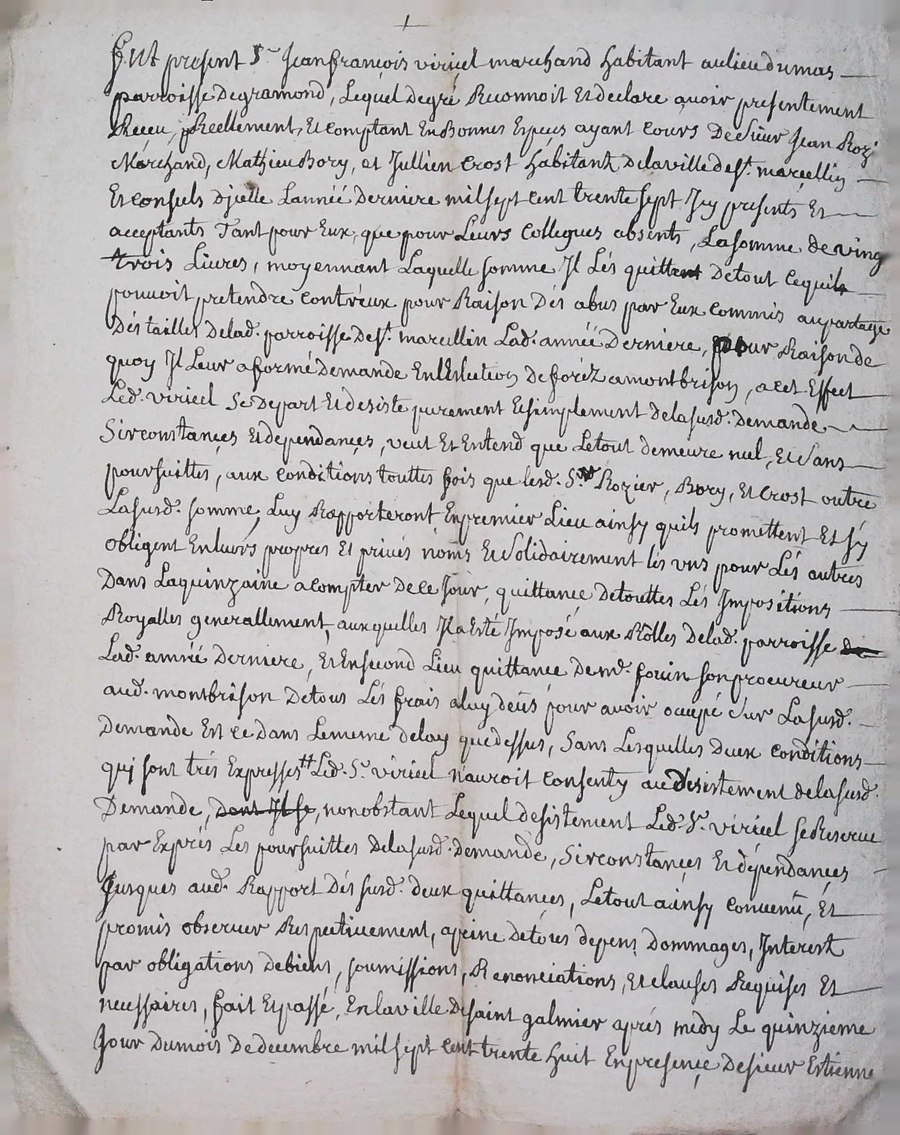 Fut present Sr. Jean françois viricel marchand habitant au lieu du mas
parroisse de gramond, Lequel de gré Reconnoit Et declare avoir presentement
Receu, Réellement, Et comptant En Bonnes Especes ayant cours De Sieur Jean Rozier
Marchand, Mathieu Bory, et Jullien Crost habitants de la ville de St. marcellin
Et consuls d'jcelle L'année Derniere mil sept cent trente sept Jcy presents Et
acceptants Tant pour Eux, que pour Leurs Collegues absents, La somme de ving
trois Livres, moyennant Laquelle somme Il Les quitte De tout ce quil
pouvoit pretendre contr'eux pour Raison Des abus par Eux commis au partage
Des tailles De lad. parroisse de St. marcellin Lad. année Derniere, pour Raison de
quoy Il Leur a formé demande En L'Election de forèz a montbrison, a cet Effect
Led. viricel Se Depart Et desiste purement Et simplement de la susd. Demande
Sirconstances Et dependances, veut Et Entend que Le tout demeure nul, Et sans
poursuittes, aux conditions touttes fois que lesd. Srs Rozier, Bory, Et Crost outre
La susd. somme, Luy Rapporteront En premier Lieu ainsy quils promettent Et sy
obligent En leurs propres Et privés noms Et solidairement les uns pour Les autres
Dans La quinzaine a compter De ce Jour, quittance de touttes Les Impositions
Royalles generallement, aux quelles Il a Esté Imposé aux Rolles de lad. parroisse de
Lad. année Derniere, Et En second Lieu quittance de Me. fouin son procureur
aud. montbrison De tous Les frais a luy deüs pour avoir occupé sur La susd.
Demande Et ce dans Le meme delay que dessus, Sans Lesquelles deux conditions
qui sont trés Expresses Led. Sr. viricel n'auroit consenty au desistement de la susd.
Demande, dont Il se, nonobstant Lequel desistement Led. Sr. viricel se Reserve
par Exprés Les poursuittes de la susd. demande, Sirconstances Et dépendances
Jusques aud. Rapport Des susd. deux quittances, Le tout ainsy convenu, Et
promis observer Respectivement, a peine de tous depens Dommages, Interest
par obligations de biens, soumissions, Renonciations, Et clauses Requises Et
necessaires, fait Et passé, En la ville De saint galmier aprés midy Le quinzieme
Jour du mois De decembre mil sept cent trente huit En presence De sieur Estienne